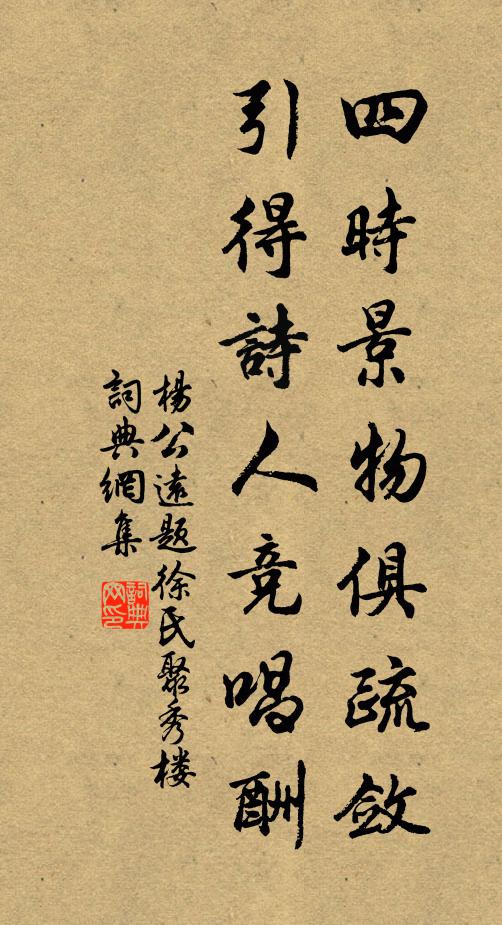 四時景物俱疏斂
引得詩人竞唱酬
楊公遠題徐氏聚秀楼
詞典網集
詞典网印